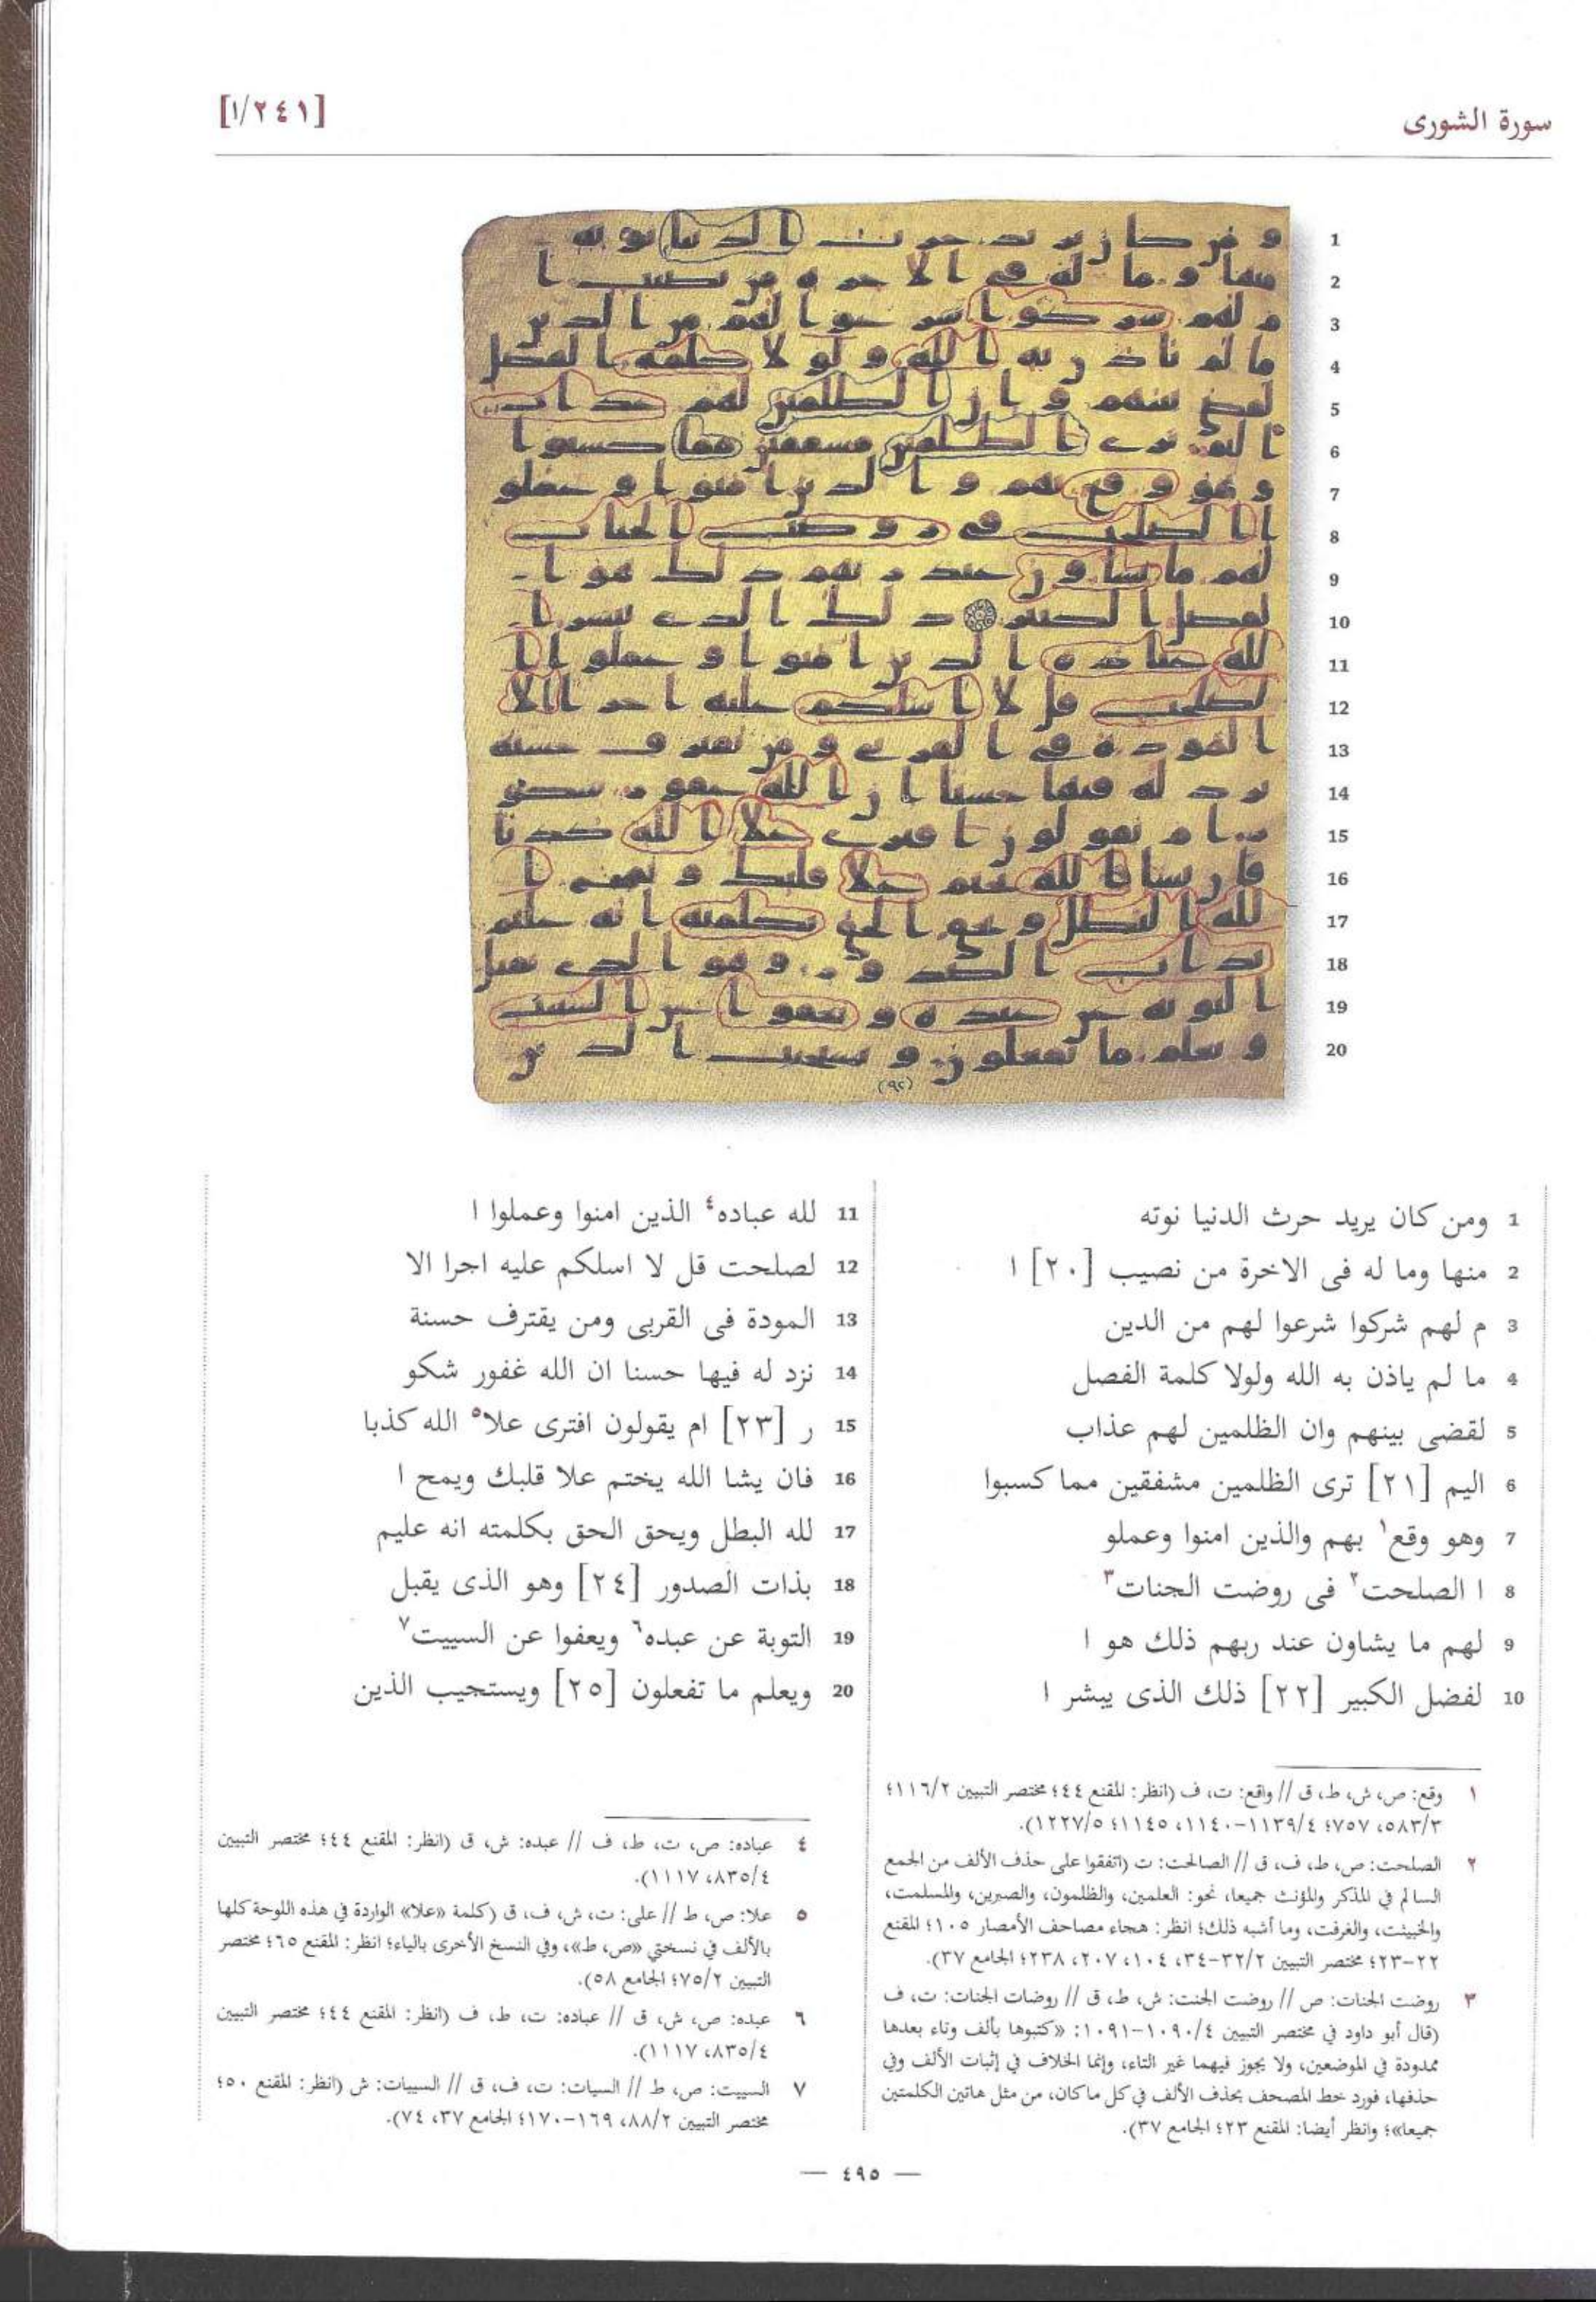 سورة الشورى
[١/٢٤١]
1 ومن كان يريد حرث الدنيا نوته
2 منها وما له فى الاخرة من نصيب [٢٠] ا
3 م لهم شركوا شرعوا لهم من الدين
4 ما لم ياذن به الله ولولا كلمة الفصل
5 لقضى بينهم وان الظلمين لهم عذاب
6 اليم [٢١] ترى الظلمين مشفقين مما كسبوا
7 وهو وقع١ بهم والذين امنوا وعملو
8 ا الصلحت٢ فى روضت الجنات٣
9 لهم ما يشاون عند ربهم ذلك هو ا
10 لفضل الكبير [٢٢] ذلك الذى يبشر ا
11 لله عباده٤ الذين امنوا وعملوا ا
12 لصلحت قل لا اسلكم عليه اجرا الا
13 المودة فى القربى ومن يقترف حسنة
14 نزد له فيها حسنا ان الله غفور شكو
15 ر [٢٣] ام يقولون افترى علا٥ الله كذبا
16 فان يشا الله يختم علا قلبك ويمح ا
17 لله البطل ويحق الحق بكلمته انه عليم
18 بذات الصدور [٢٤] وهو الذى يقبل
19 التوبة عن عبده٦ ويعفوا عن السييت٧
20 ويعلم ما تفعلون [٢٥] ويستجيب الذين
١ وقع: ص، ش، ط، ق // واقع: ت، ف (انظر: المقنع ٤٤؛ مختصر التبيين ١١٦/٢؛
٥٨٣/٣، ٧٥٧؛ ١١٣٩/٤-١١٤٠، ١١٤٥؛ ١٢٢٧/٥).
٢ الصلحت: ص، ط، ف، ق // الصالحت: ت (اتفقوا على حذف الألف من الجمع
السالم في المذكر والمؤنث جميعا، نحو: العلمين، والظلمون، والصبرين، والمسلمت،
والخبيثت، والغرفت، وما أشبه ذلك؛ انظر: هجاء مصاحف الأمصار ١٠٥؛ المقنع
٢٢-٢٣؛ مختصر التبيين ٣٢/٢-٣٤، ١٠٤، ٢٠٧، ٢٣٨؛ الجامع ٣٧).
٣ روضت الجنات: ص // روضت الجنت: ش، ط، ق // روضات الجنات: ت، ف
(قال أبو داود في مختصر التبيين ١٠٩٠/٤-١٠٩١: «كتبوها بألف وتاء بعدها
ممدودة في الموضعين، ولا يجوز فيهما غير التاء، وإنما الخلاف في إثبات الألف وفي
حذفها، فورد خط المصحف بحذف الألف في كل ما كان، من مثل هاتين الكلمتين
جميعا»؛ وانظر أيضا: المقنع ٢٣؛ الجامع ٣٧).
٤ عباده: ص، ت، ط، ف // عبده: ش، ق (انظر: المقنع ٤٤؛ مختصر التبيين
٨٣٥/٤، ١١١٧).
٥ علا: ص، ط // على: ت، ش، ف، ق (كلمة «علا» الواردة في هذه اللوحة كلها
بالألف في نسختي «ص، ط»، وفي النسخ الأخرى بالياء؛ انظر: المقنع ٦٥؛ مختصر
التبيين ٧٥/٢؛ الجامع ٥٨).
٦ عبده: ص، ش، ق // عباده: ت، ط، ف (انظر: المقنع ٤٤؛ مختصر التبيين
٨٣٥/٤، ١١١٧).
٧ السييت: ص، ط // السيات: ت، ف، ق // السييات: ش (انظر: المقنع ٥٠؛
مختصر التبيين ٨٨/٢، ١٦٩-١٧٠؛ الجامع ٣٧، ٧٤).
— ٤٩٥ —